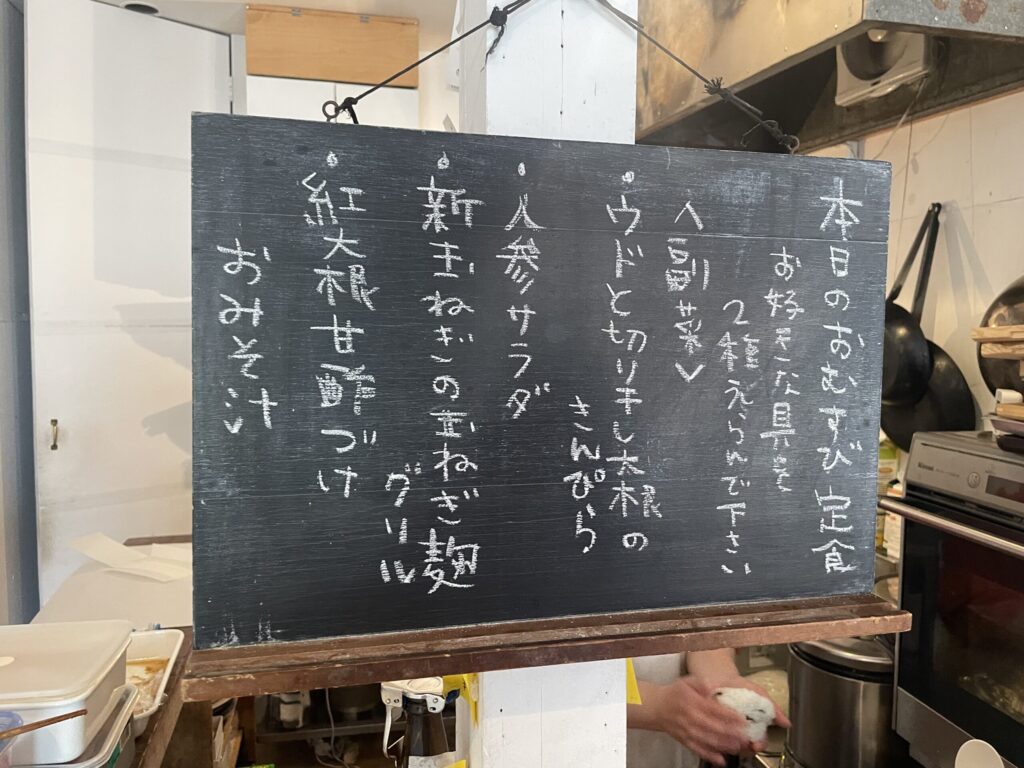 本日のおむすび定食
お好きな具を
2種えらんで下さい
〈副菜〉
・ウドと切り干し大根の
きんぴら
・人参サラダ
・新玉ねぎの玉ねぎ麹
グリル
・紅大根甘酢づけ
おみそ汁
Rinnai